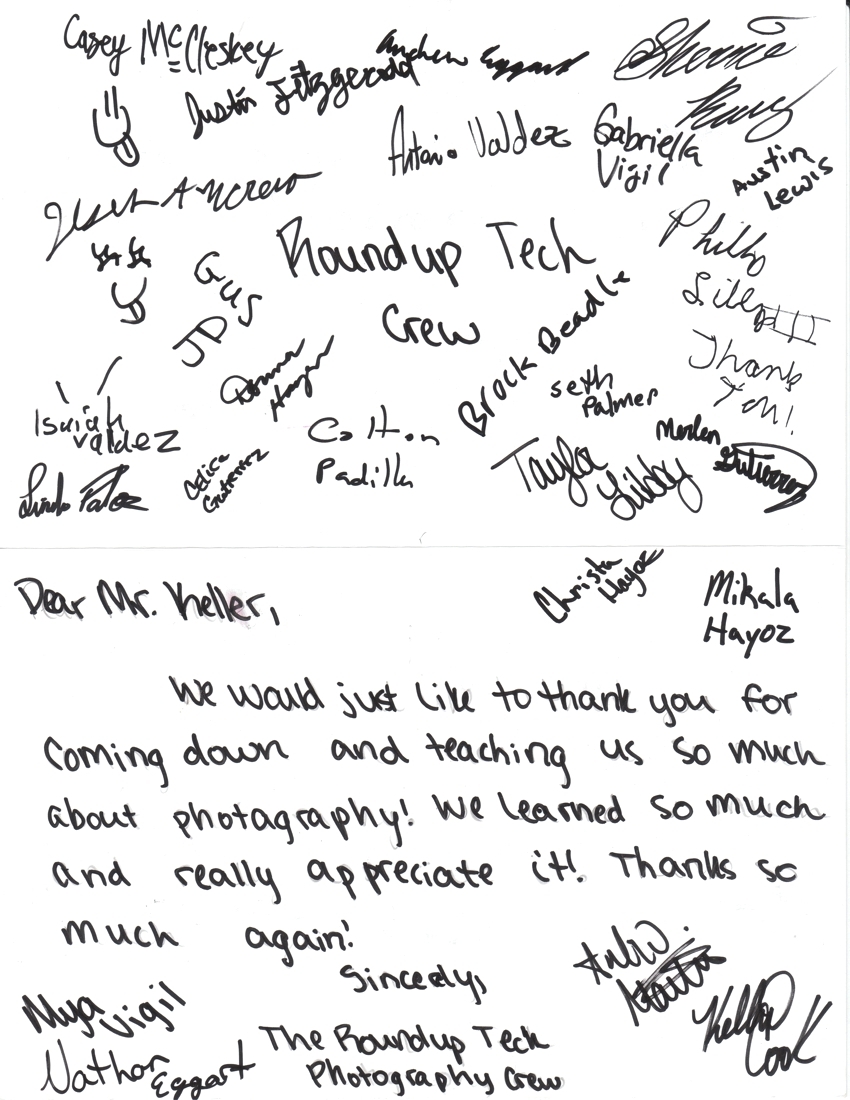 Casey McCleskey
Andrew Eggart
Justin Fitzgerald
Sherrie
Antonio Valdez
Gabriella
Vigil
Austin
Lewis
Philly
Roundup Tech
Crew
Gus
JD
Lilly
Thank
You!
Brock Beadle
Seth
Palmer
Donna
Hayoz
Isaiah
Valdez
Colton
Padilla
Celica
Gutierrez
Taylor
Libby
Gutierrez
Linda
Dear Mr. Keller,
Christa
Hayoz
Mikala
Hayoz
We would just like to thank you for
coming down and teaching us so much
about photagraphy! We learned so much
and really appreciate it! Thanks so
much again!
Sincerly,
The Roundup Tech
Photography Crew
Mya Vigil
Nathan
Eggart
Kelly
Cook